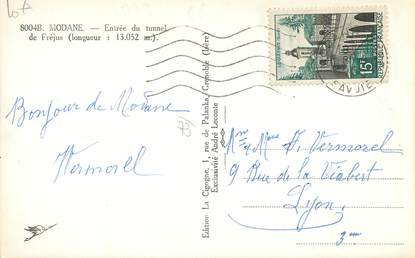 8004B. MODANE. — Entrée du tunnel
de Fréjus (longueur : 13.052 m.)
Bonjour de Modane
Vermorel
Edition La Cigogne, 1, rue de Palanka, Grenoble (Isère)
Exclusivité André Leconte
15F
SAVOIE
Mr & Mme Vermorel
9 Rue de la Viabert
Lyon
3me